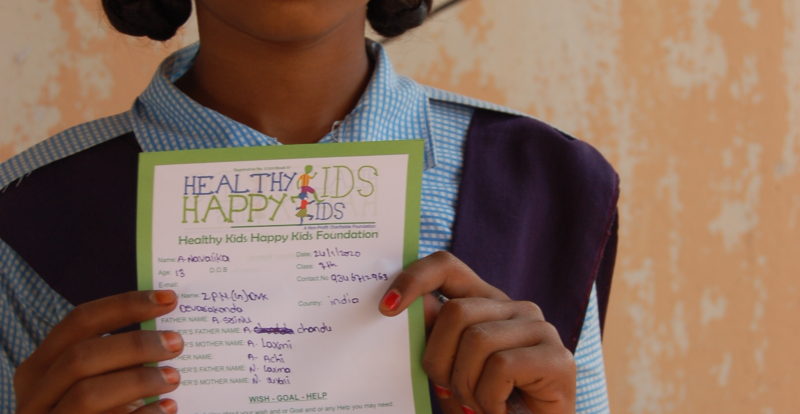 HEALTHY KIDS
HAPPY KIDS
A Non-Profit Charitable Foundation
Healthy Kids Happy Kids Foundation
Name: A. Navalika Date: 24/1/2020
Age: 13 D.O.B Class: 7th
E-mail: Contact No:
Name: Z P H (G) Country: india
Devarakonda
FATHER NAME: A. SRINU
HER'S FATHER NAME: A chandu
ER'S MOTHER NAME: A. Laxmi
R NAME: A. Achi
ER'S FATHER NAME: N.
ER'S MOTHER NAME: N.
WISH - GOAL - HELP
your wish and or Goal and or any Help you may need.